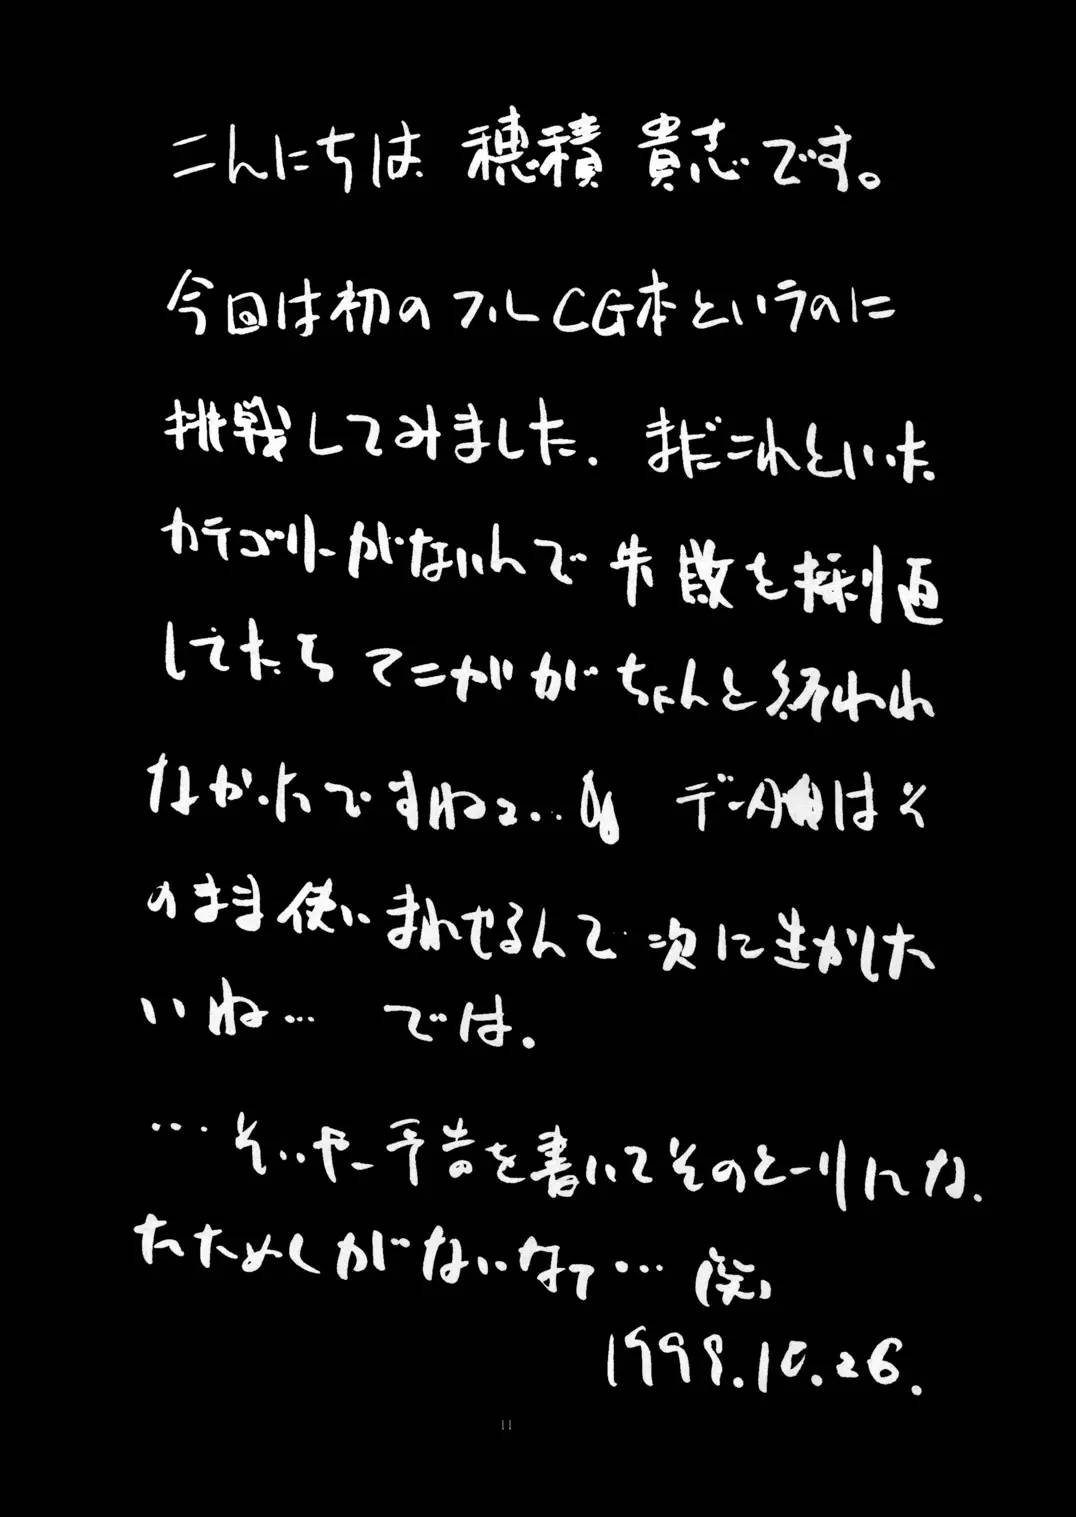 こんにちは 穂積 貴志です。
今回は初のフルCG本というのに
挑戦してみました. まだこれといった
カテゴリーがないんで 失敗を 繰り返
してたら マニがが ちゃんと 終われ
なかったですねェ... データは そ
のまま使いまわせるんで 次に生かした
いね... では.
... そいやー予告を書いてそのとーりにな.
たためしがないなァ... (笑)
1998.10.26.
11